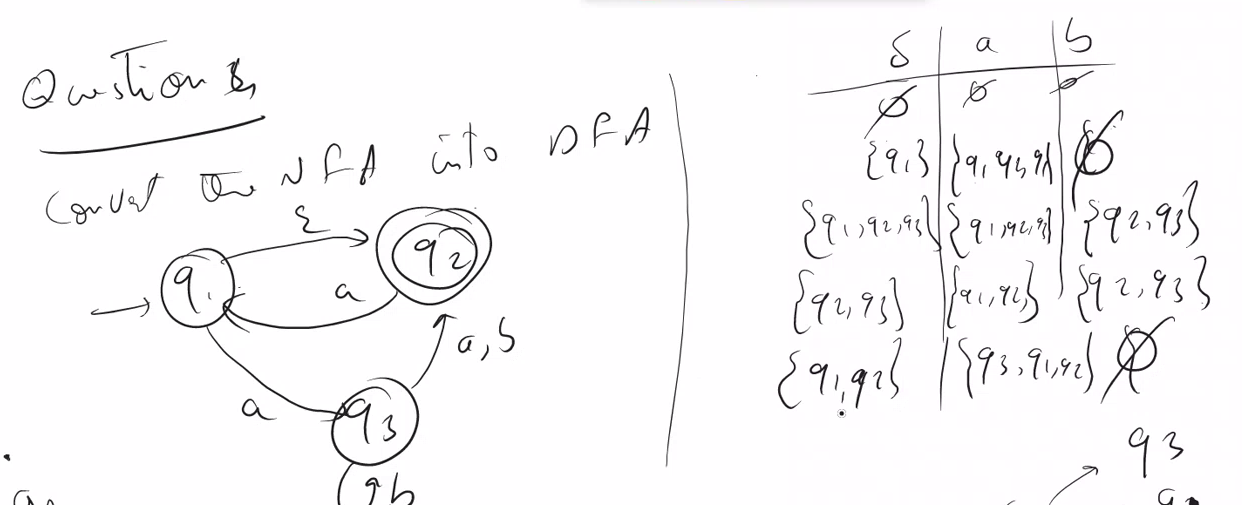 Question
Convert the NFA into DFA
ε
q1
q2
a
a, b
a
q3
b
δ a b
∅ ∅ ∅
{q1} ∅
{q1, q2, q3} {q1, q2, q3} {q2, q3}
{q2, q3} {q1, q2} {q2, q3}
{q1, q2} {q3, q1, q2} ∅
q3